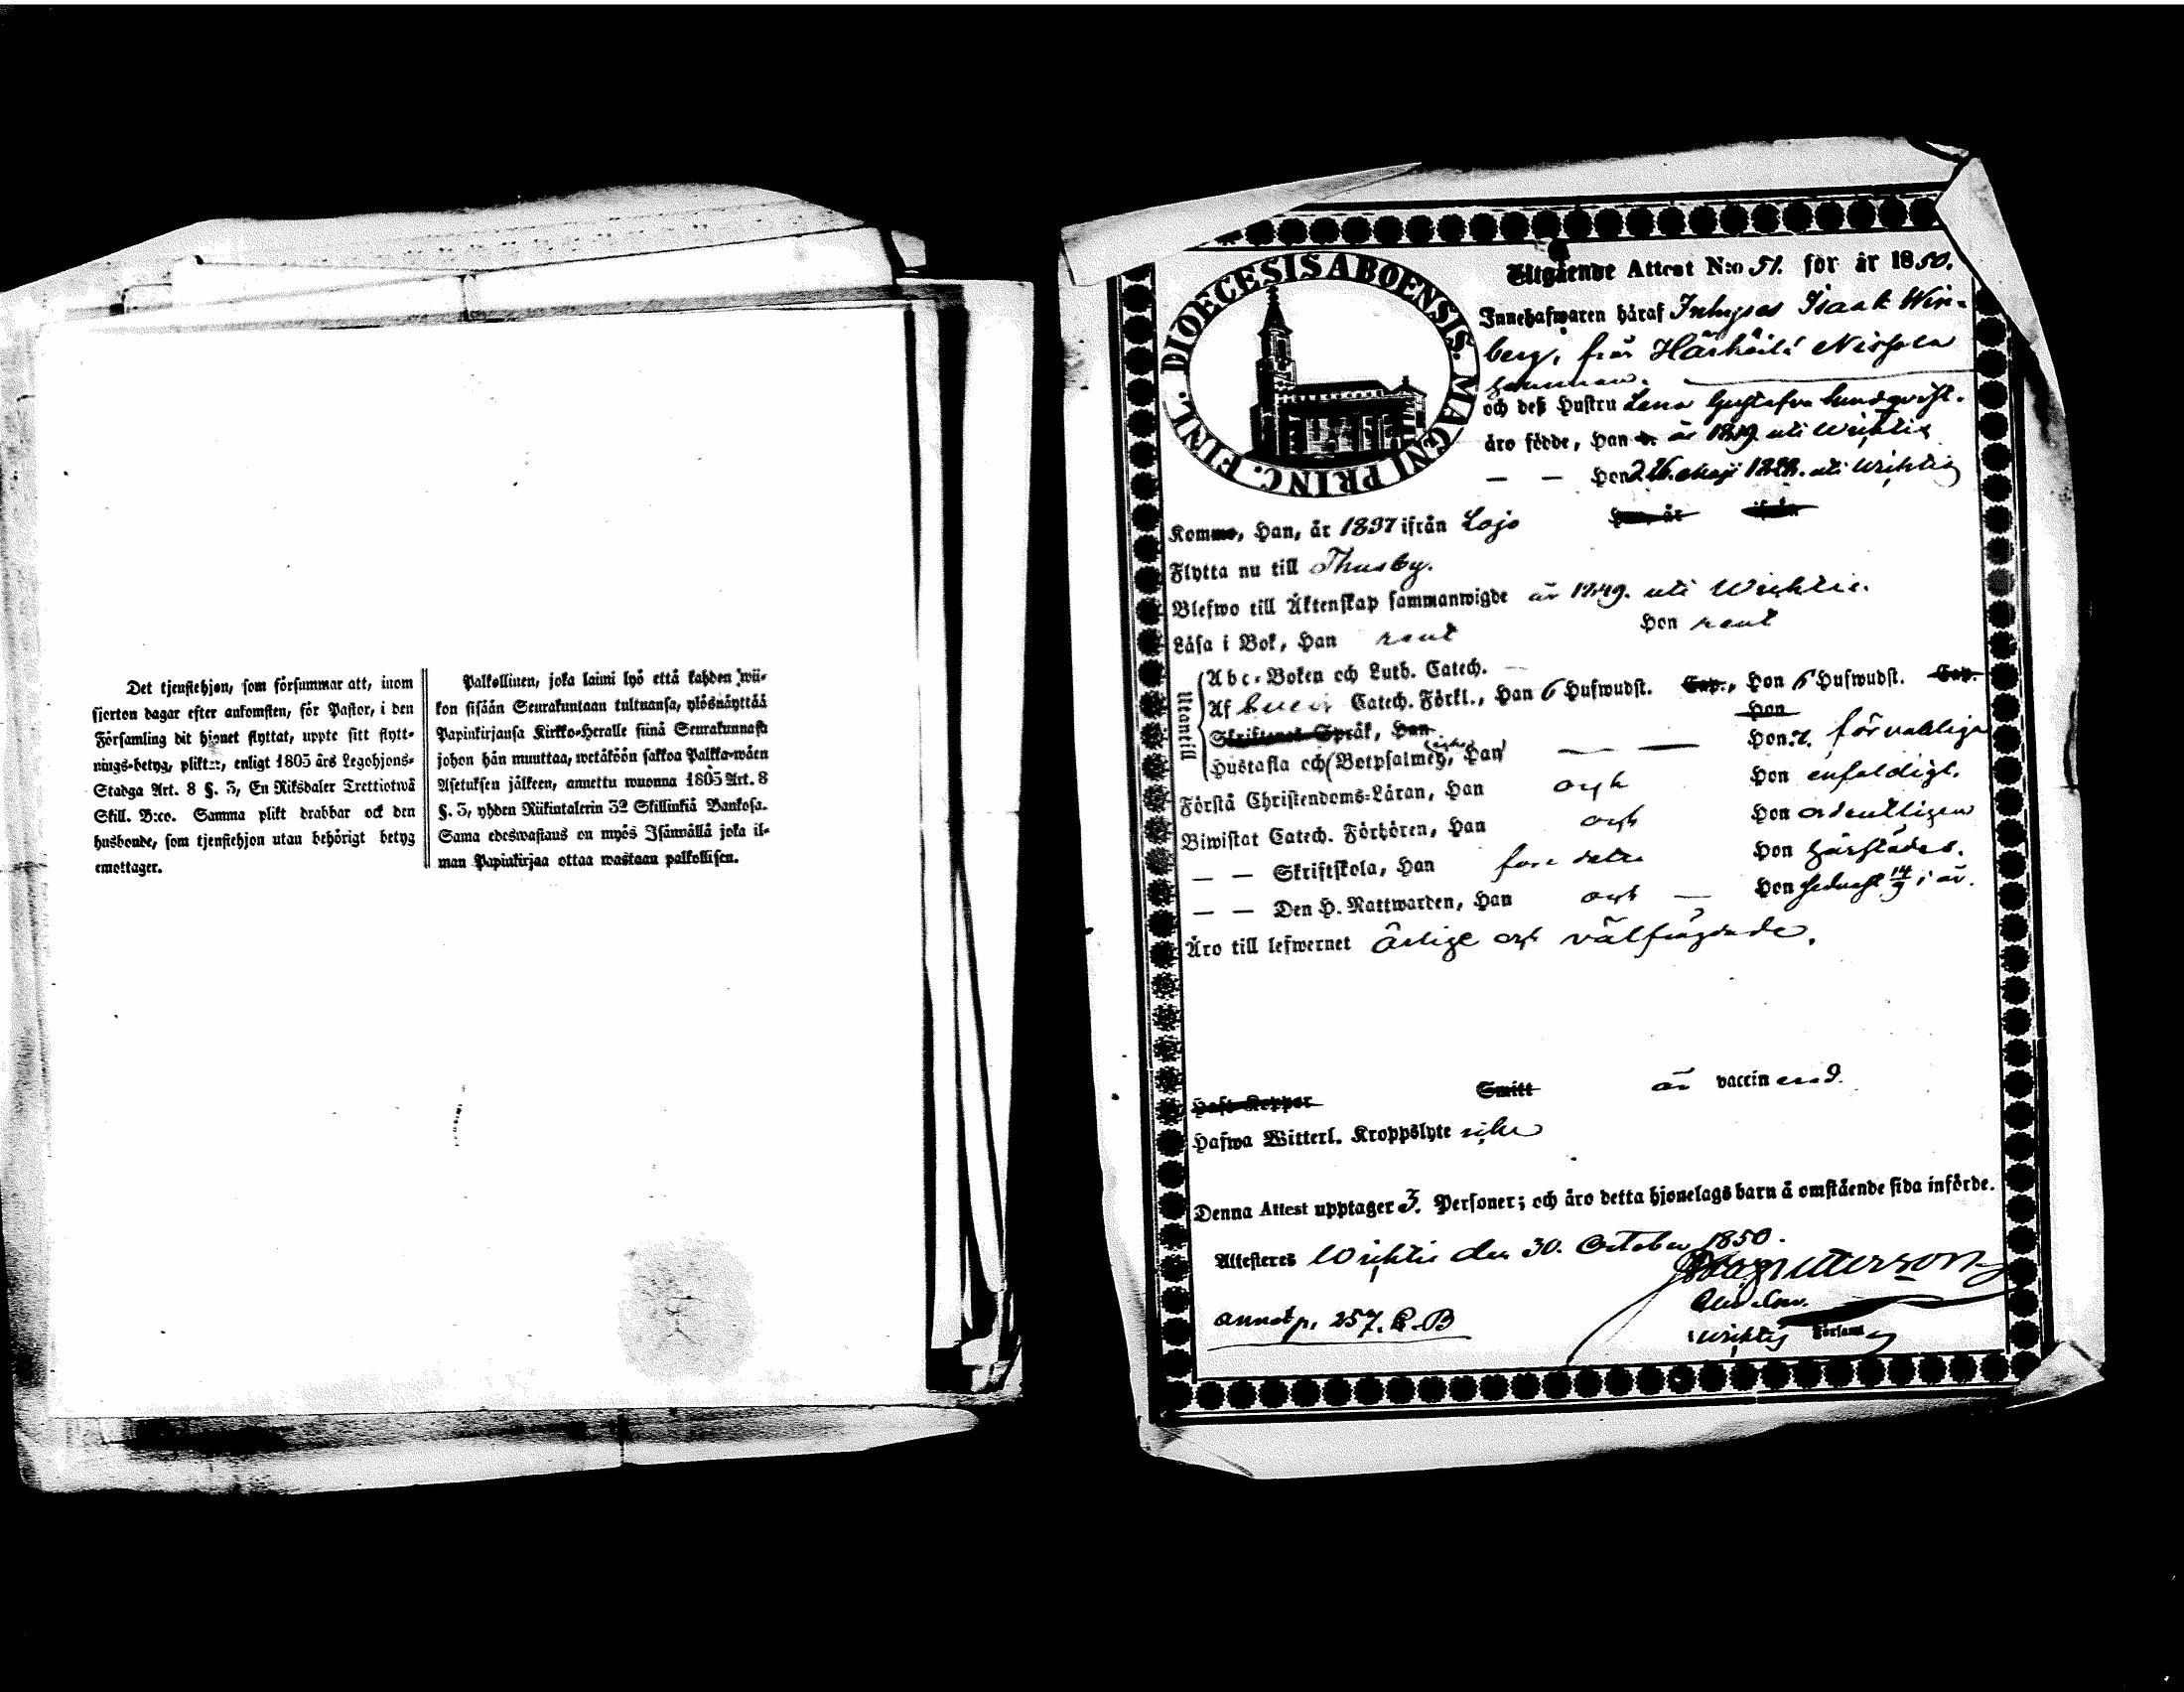 Det tjenstehjon, som försummar att, inom
fjorton dagar efter ankomsten, för Pastor, i den
Församling dit hjonet flyttat, uppte sitt flytt-
nings-betyg, plikte, enligt 1805 års Legohjons-
Stadga Art. 8 §. 3, En Riksdaler Trettiotwå
Skill. B:co. Samma plikt drabbar ock den
husbonde, som tjenstehjon utan behörigt betyg
emottager.
Palkollinen, joka laimi lyö että kahden wii-
kon sisään Seurakuntaan tultuansa, ylösnäyttää
Papinkirjansa Kirkko-Heralle siinä Seurakunnasa
johon hän muuttaa, wetäköön sakkoa Palkka-wäen
Asetuksen jälkeen, annettu wuonna 1805 Art. 8
§. 3, yhden Riikintalerin 32 Skillinkiä Bankosa.
Sama edeswastaus on myös Isännällä joka il-
man Papinkirjaa ottaa wastaan palkollisen.
DIOECESIS ABOENSIS. MAGNI PRINC. FINL.
Utgående Attest N:o 51. för år 1850.
Innehafwaren häraf Inhyses Isaak Win-
berg, från Härköilä Nissola
hemman.
och deß Hustru Lena Gustafva Lundqvist.
äro födde, Han år 1819 uti Wichtis
— — Hon d. 26. Maji 1822. uti Wichtis
Kommo, Han, år 1837 ifrån Lojo Hon, år ifrån
Flytta nu till Thusby.
Blefwo till Äktenskap sammanwigde år 1849. uti Wichtis.
Läsa i Bok, Han rent Hon rent
Utantill
Abc-Boken och Luth. Catech. —
Af Catech. Förkl., Han 6 Hufwudst. Cap., Hon 6 Hufwudst. Cap.
Skriftenes Språk, Han Hon
Hustafla och Botpsalmer, Han — — Hon
Förstå Christendoms-Läran, Han och Hon enfaldigt.
Biwistat Catech. Förhören, Han och Hon ordentligen
— — Skriftskola, Han Hon härstädes.
— — Den H. Nattwarden, Han och — Hon sednast 14/9 i år.
Äro till lefwernet ärlige och välfrägdade.
Haft Koppor Smitt är vaccinerad.
Hafwa Witterl. Kroppslyte icke
Denna Attest upptager 3. Personer; och äro detta hjonelags barn å omstående sida införde.
Attesteres Wichtis den 30. October 1850.
Wichtis Församl
annot p. 257. C.B